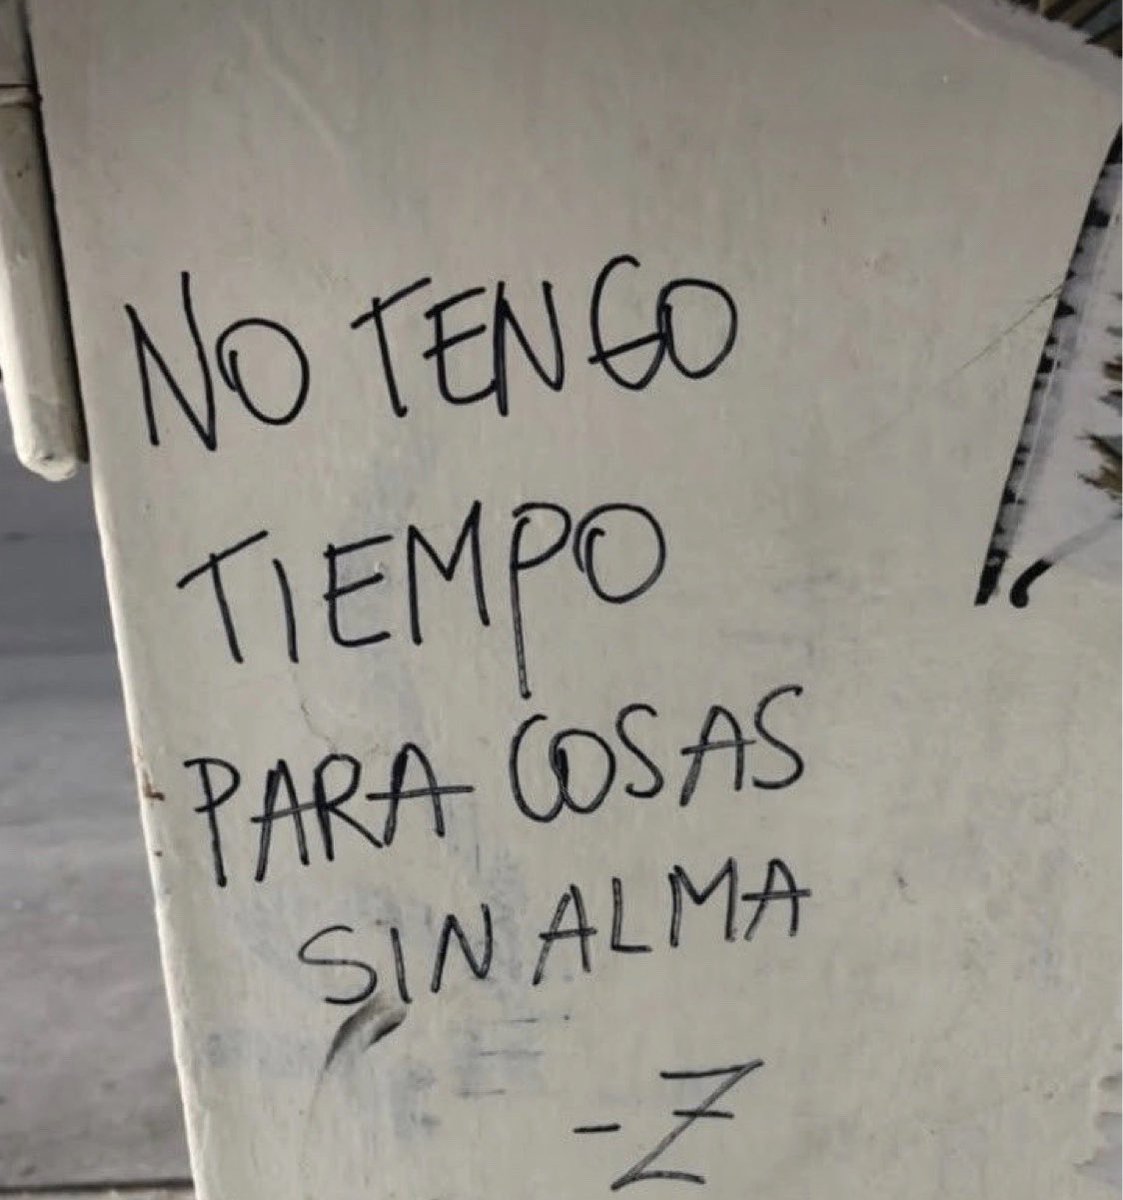 NO TENGO
TIEMPO
PARA COSAS
SIN ALMA
-Z